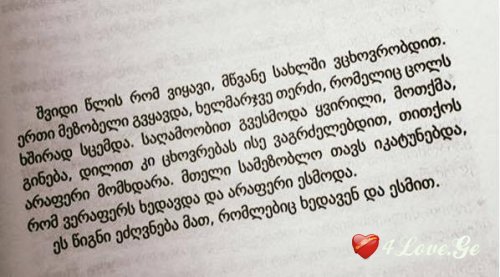 შვიდი წლის რომ ვიყავი, მწვანე სახლში ვცხოვრობდით.
ერთი მეზობელი გვყავდა, ხელმარჯვე თერძი, რომელიც ცოლს
ხშირად სცემდა. საღამოობით გვესმოდა ყვირილი, მოთქმა,
გინება, დილით კი ცხოვრებას ისე ვაგრძელებდით, თითქოს
არაფერი მომხდარა. მთელი სამეზობლო თავს იკატუნებდა,
რომ ვერაფერს ხედავდა და არაფერი ესმოდა.
ეს წიგნი ეძღვნება მათ, რომლებიც ხედავენ და ესმით.
4Love.Ge